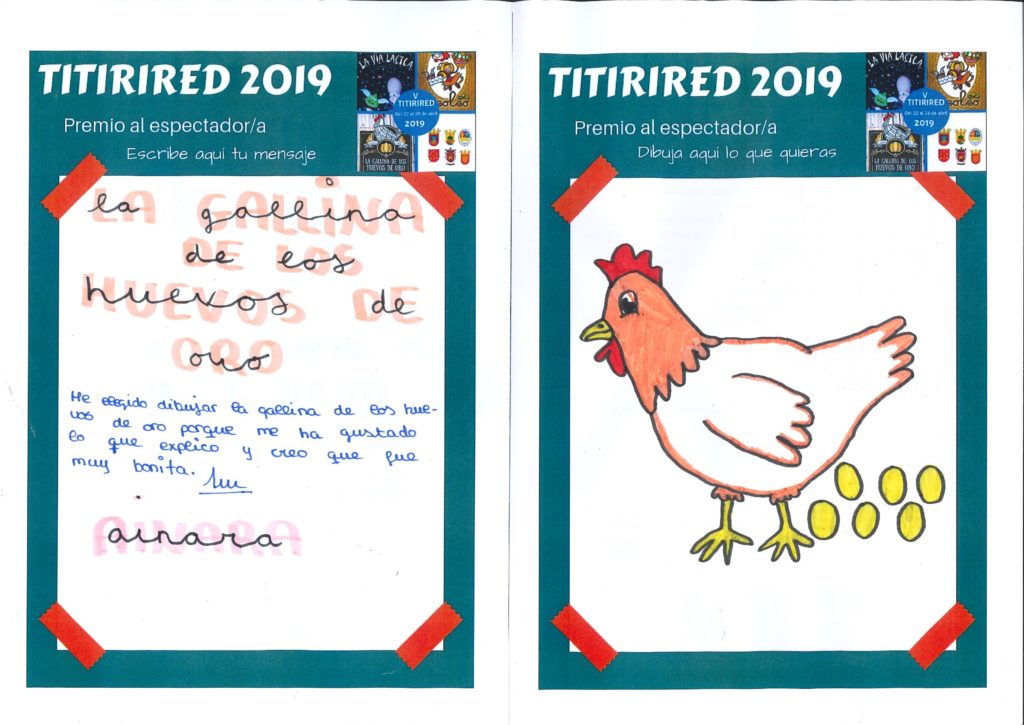 TITIRIRED 2019
Premio al espectador/a
Escribe aquí tu mensaje
LA VIA LACTEA
V
TITIRIRED
Del 22 al 28 de abril
2019
LA GALLINA DE LOS
HUEVOS DE ORO
LA GALLINA
la gallina
DE LOS
de los
HUEVOS DE
huevos de
ORO
oro
He elegido dibujar la gallina de los hue-
vos de oro porque me ha gustado
lo que explico y creo que fue
muy bonita.
AINARA
ainara
TITIRIRED 2019
Premio al espectador/a
Dibuja aquí lo que quieras
LA VIA LACTEA
V
TITIRIRED
Del 22 al 28 de abril
2019
LA GALLINA DE LOS
HUEVOS DE ORO